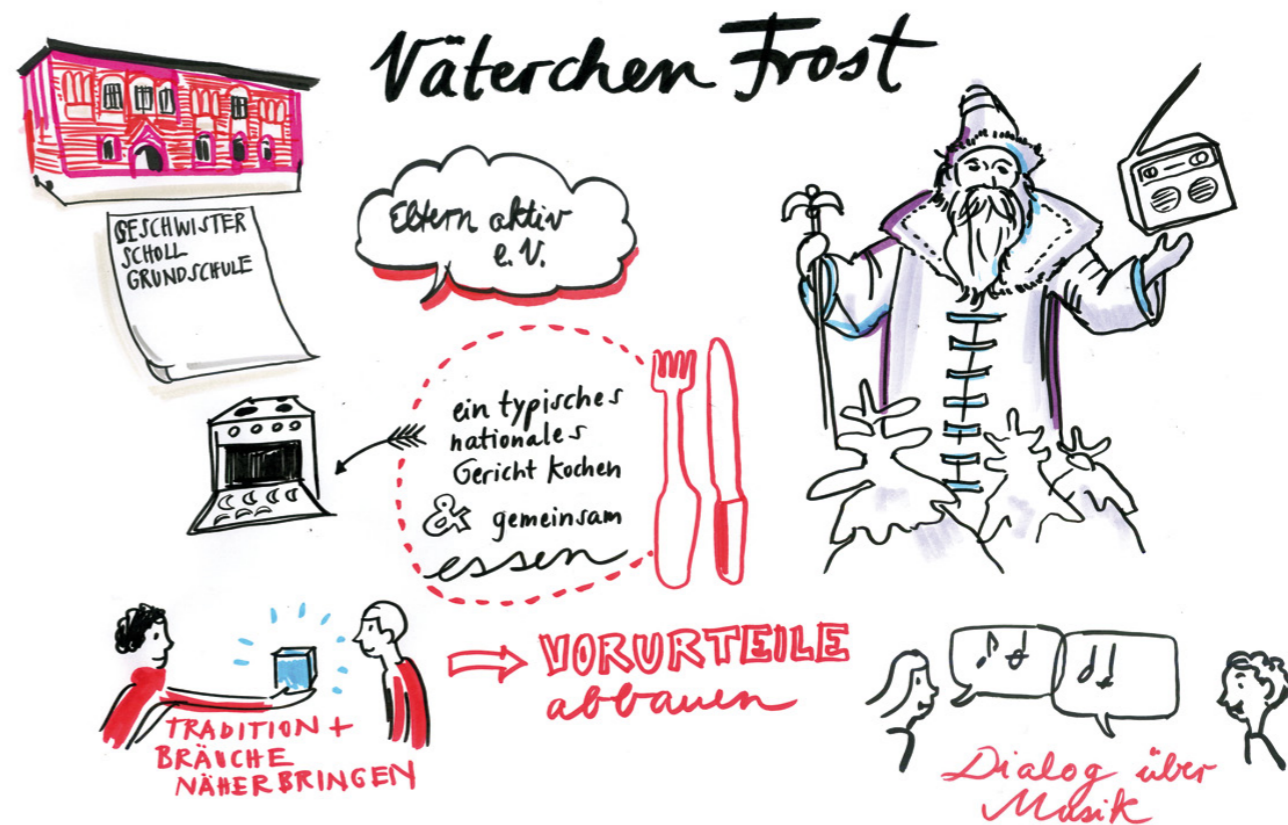 Väterchen Frost
GESCHWISTER
SCHOLL
GRUNDSCHULE
Eltern aktiv
e.V.
ein typisches
nationales
Gericht kochen
& gemeinsam
essen
TRADITION +
BRÄUCHE
NÄHERBRINGEN
VORURTEILE
abbauen
Dialog über
Musik